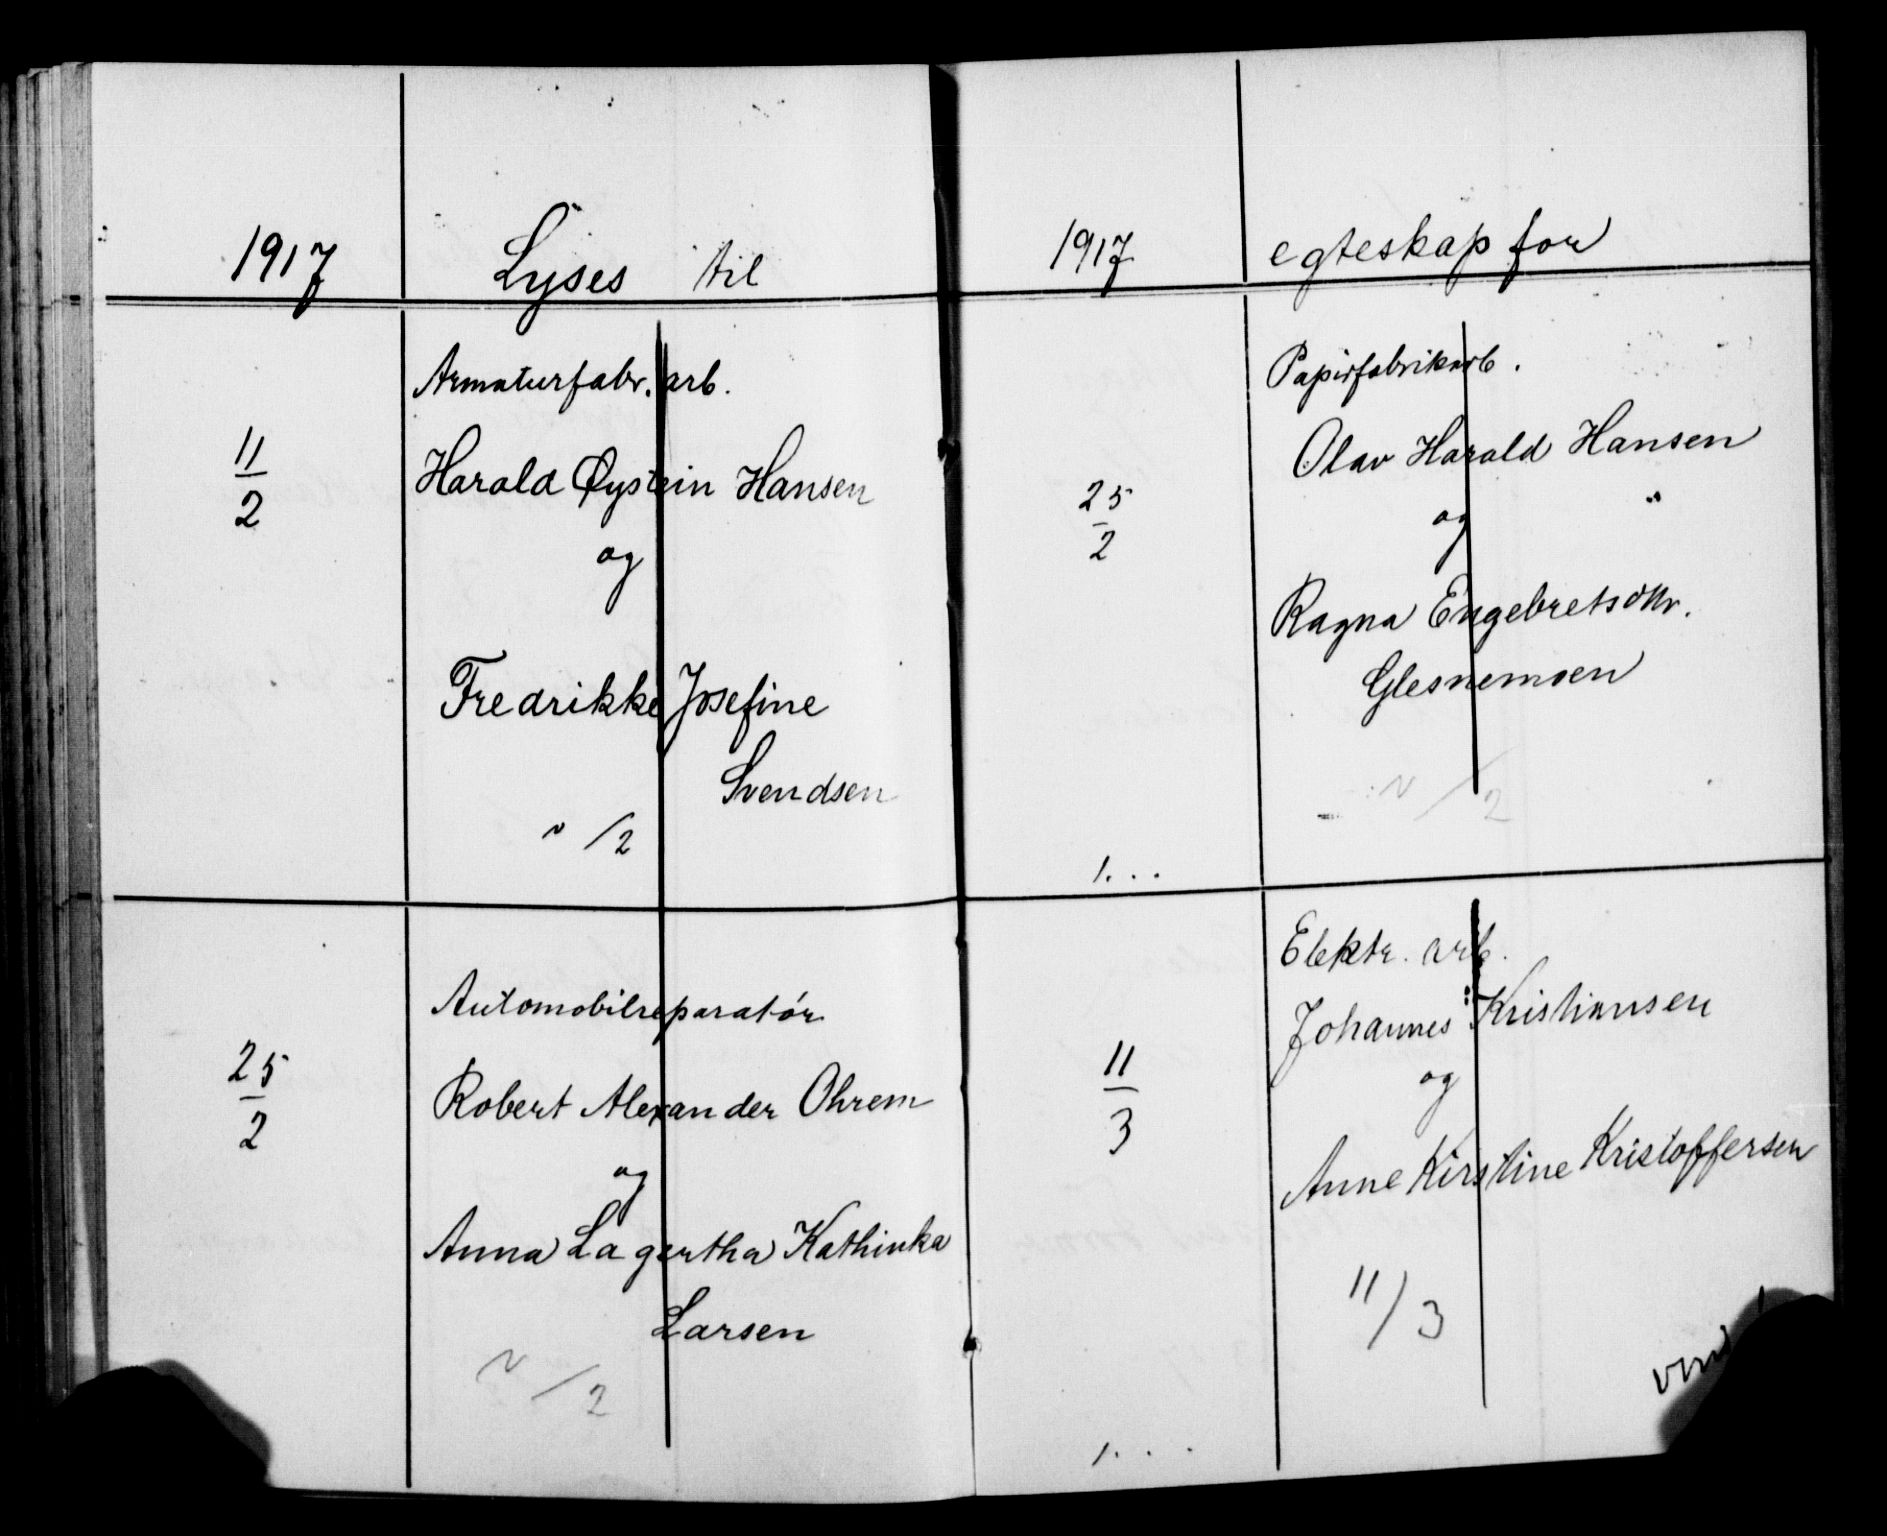 1917 Lyses til
Armaturfabr. arb.
11/2 Harald Øystein Hansen
og
Fredrikke Josefine
Svendsen
/2
Automobilreparatór
25/2 Robert Alexander Ohrem
og
Anna Lagertha Kathinka
Larsen
/2
1917 egteskap for
Papirfabrikarb.
Olav Harald Hansen
25/2 og
Ragna Engebretsdtr.
Glesnemoen
/2
1...
Elektr. arb.
Johannes Kristiansen
11/3 og
Anne Kirstine Kristoffersen
11/3
1...